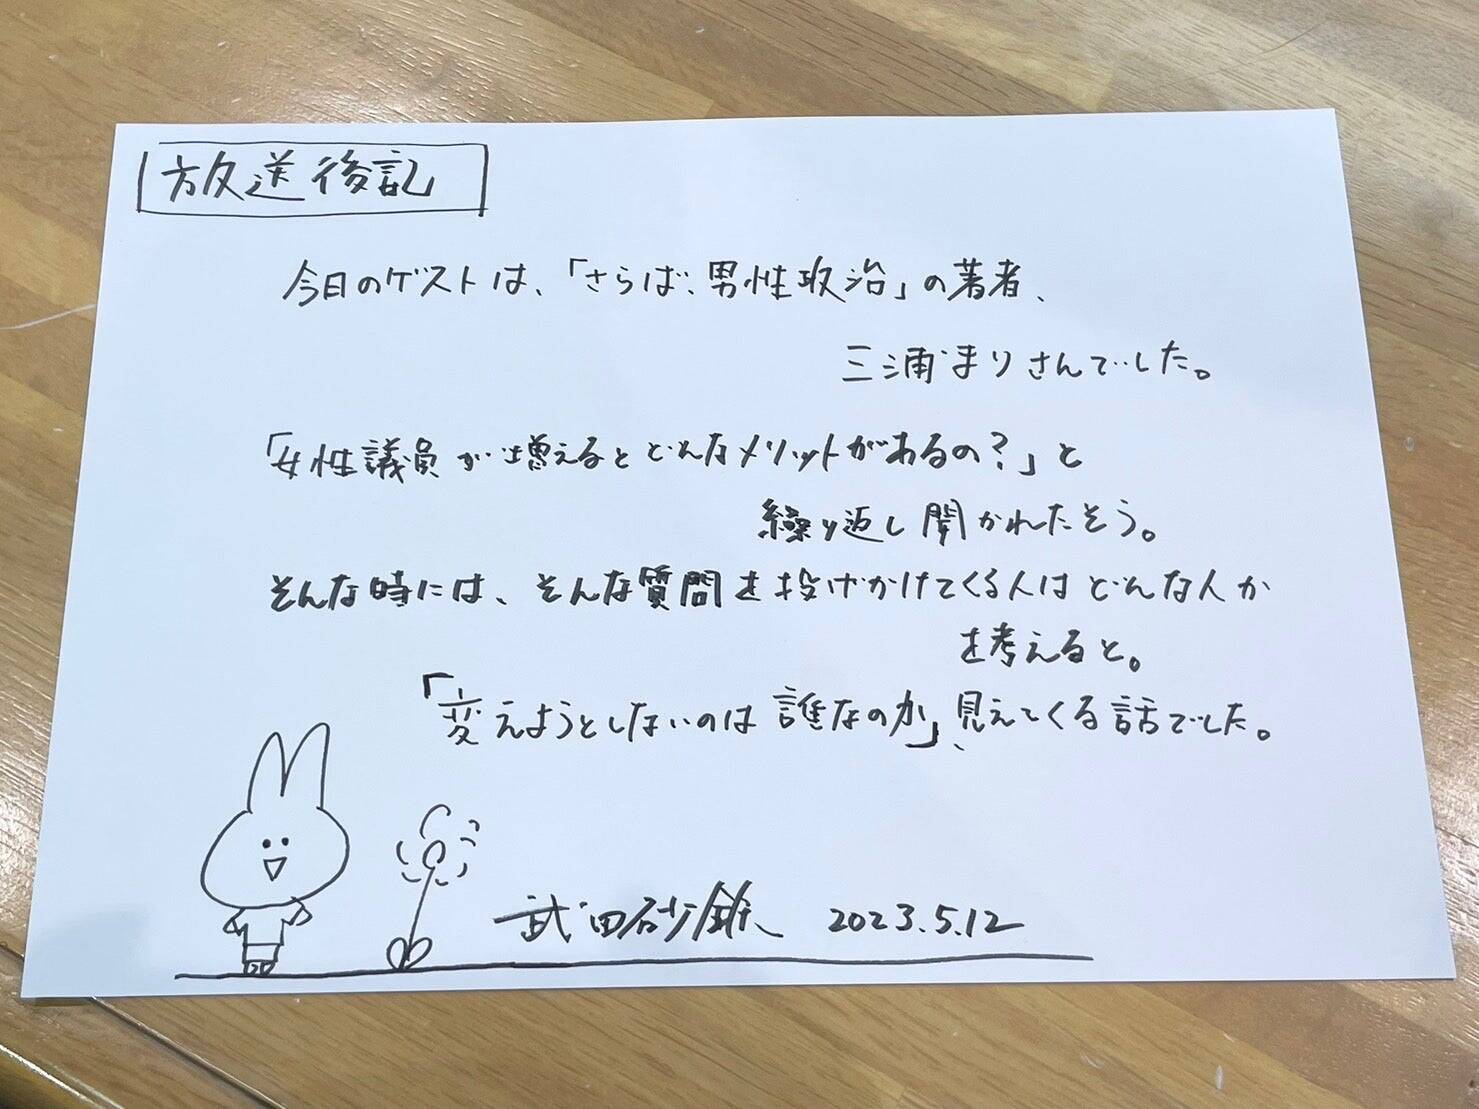 放送後記
今日のゲストは、「さらば、男性政治」の著者、
三浦まりさんでした。
「女性議員が増えるとどんなメリットがあるの？」と
繰り返し聞かれたそう。
そんな時には、そんな質問を投げかけてくる人はどんな人か
を考えると。
「変えようとしないのは誰なのか」、見えてくる話でした。
武田砂鉄 2023.5.12